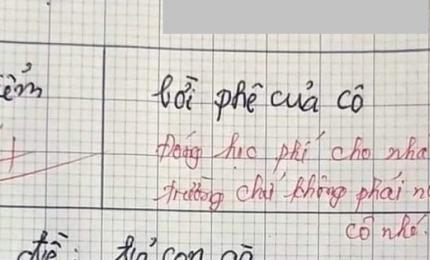 ểm
Lời phê của cô
Đóng học phí cho nhà
trường chứ không phải n
cô nhé.
đề: tả con gà